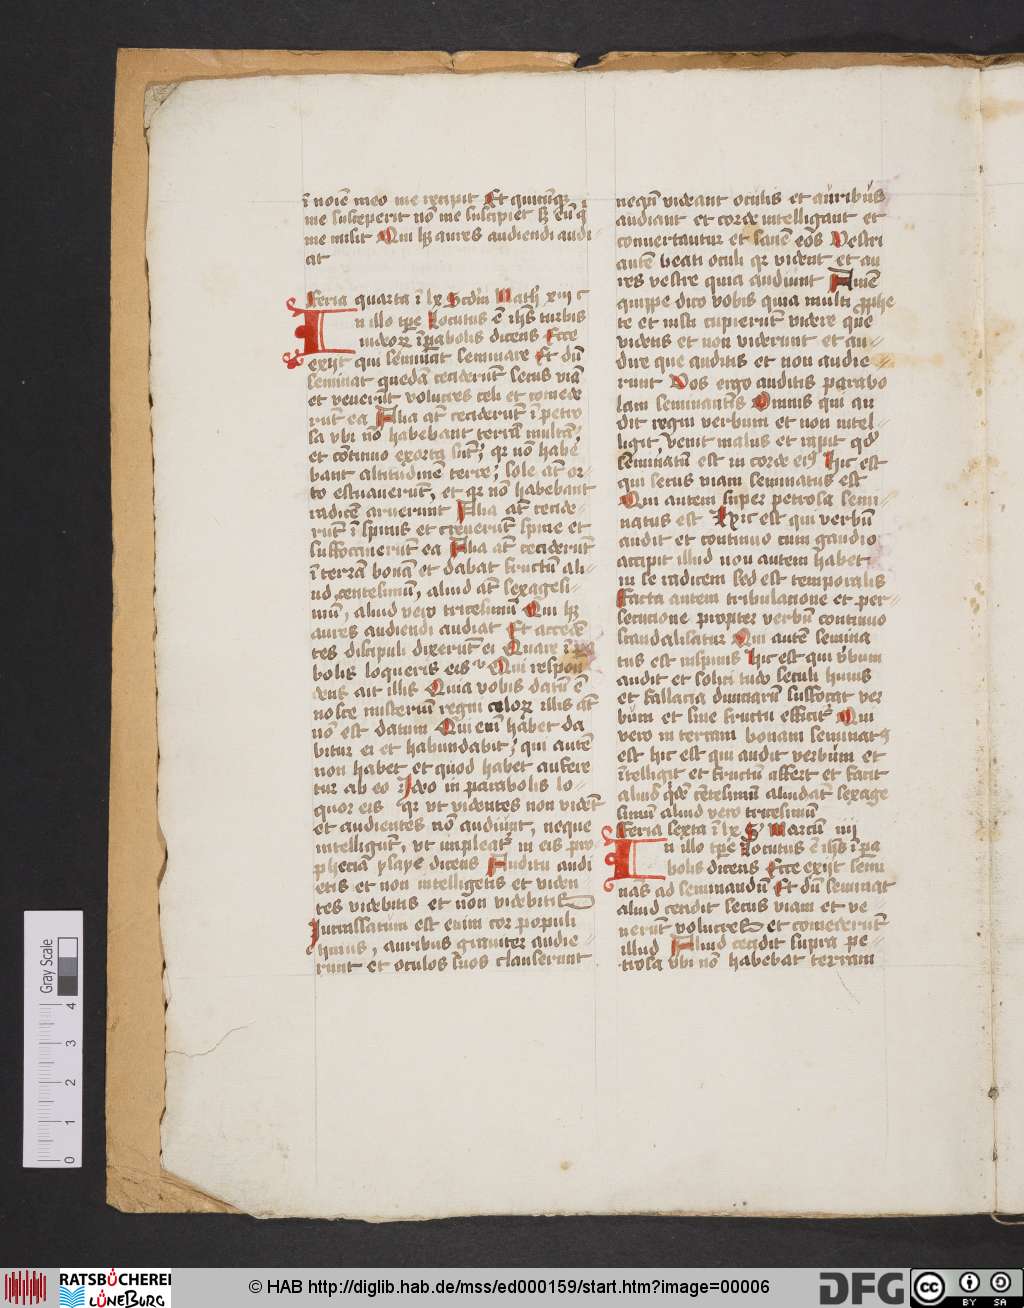 ī noīe meo me recipit Et quicūqꝫ
me susceperit nō me suscipiet sꝫ eū q̄
me misit Qui hꝫ aures audiendi audi
at
feria quarta ī lx Scdm̄ Math xiij c
In illo tp̄e Locutus ē ih̄s turbis
iudeoꝝ ī parabolis dicens Ecce
exijt qui seminat seminare Et dū
seminat quedā ceciderūt secus viā
et venerūt volucres celi et comede
rūt ea Alia at̄ ceciderūt ī petro
sa vbi nō habebant terrā multā,
et cōtinuo exorta sūt, qr nō habe
bant altitudinē terre, sole at̄ or
to estuauerūt, et qr nō habebant
radicē aruerunt Alia at̄ cecide
rūt ī spinis et creuerūt spine et
suffocauerūt ea Alia at̄ ceciderūt
ī terrā bonā et dabāt fructū ali
ud centesimū, aliud at̄ sexagesi
mū, aliud vero tricesimū Qui hꝫ
aures audiendi audiat Et accedē
tes discipuli dixerūt ei Quare ī
bolis loqueris eis Qui respon
dens ait illis Quia vobis datū ē
nosce misteriū regni celoꝝ illis at̄
nō est datum Qui enī habet da
bitur ei et habundabit, qui autē
non habet et quod habet aufere
tur ab eo Ideo in parabolis lo
quor eis qr vt videntes non vidēt
et audientes nō audiunt, neque
intelligūt, vt impleat in eis pro
phecia ysaye dicens Auditu audi
etis et non intelligetis et viden
tes videbitis et non videbitis
Incrassatum est enim cor populi
huius, auribus grauiter audie
runt et oculos suos clauserunt
neqn̄ videant oculis et auribus
audiant et corde intelligant et
conuertantur et sanem eos Vestri
autē beati oculi qr vident et au
res vestre quia audiunt Amē
quippe dico vobis quia multi prophe
te et iusti cupierūt videre que
videtis et non viderunt et au
dire que auditis et non audie
runt Vos ergo auditis parabo
lam seminantis Omnis qui au
dit regni verbum et non intel
ligit, venit malus et rapit qd̄
seminatū est in corde eiꝰ hic est
qui secus viam seminatus est
Qui autem super petrosa semi
natus est hic est qui verbū
audit et continuo cum gaudio
accipit illud non autem habet
in se radicem sed est temporalis
Facta autem tribulatione et per
secucione propter verbū continuo
scandalisatur Qui autē semina
tus est inspinis hic est qui v̄bum
audit et solicitudo seculi huius
et fallacia diuiciarū suffocat ver
bum et sine fructu efficit Qui
vero in terram bonam seminatꝰ
est hic est qui audit verbum et
ītelligit et fructū affert et facit
aliud qdē cētesimū aliudat̄ sexage
simum aliud vero tricesimū
feria sexta ī lx S Marcū iiij
In illo tp̄e Locutus ē ih̄s ī pa
bolis dicens Ecce exijt semi
nās ad seminandū Et dū seminat
aliud cecidit secus viam et ve
nerūt volucres et comederūt
illud Aliud cecidit supra pe
trosa vbi nō habebat terram
Gray Scale
4
3
2
1
0
RATSBÜCHEREI
LÜNEBURG
© HAB http://diglib.hab.de/mss/ed000159/start.htm?image=00006
DFG
cc
BY SA